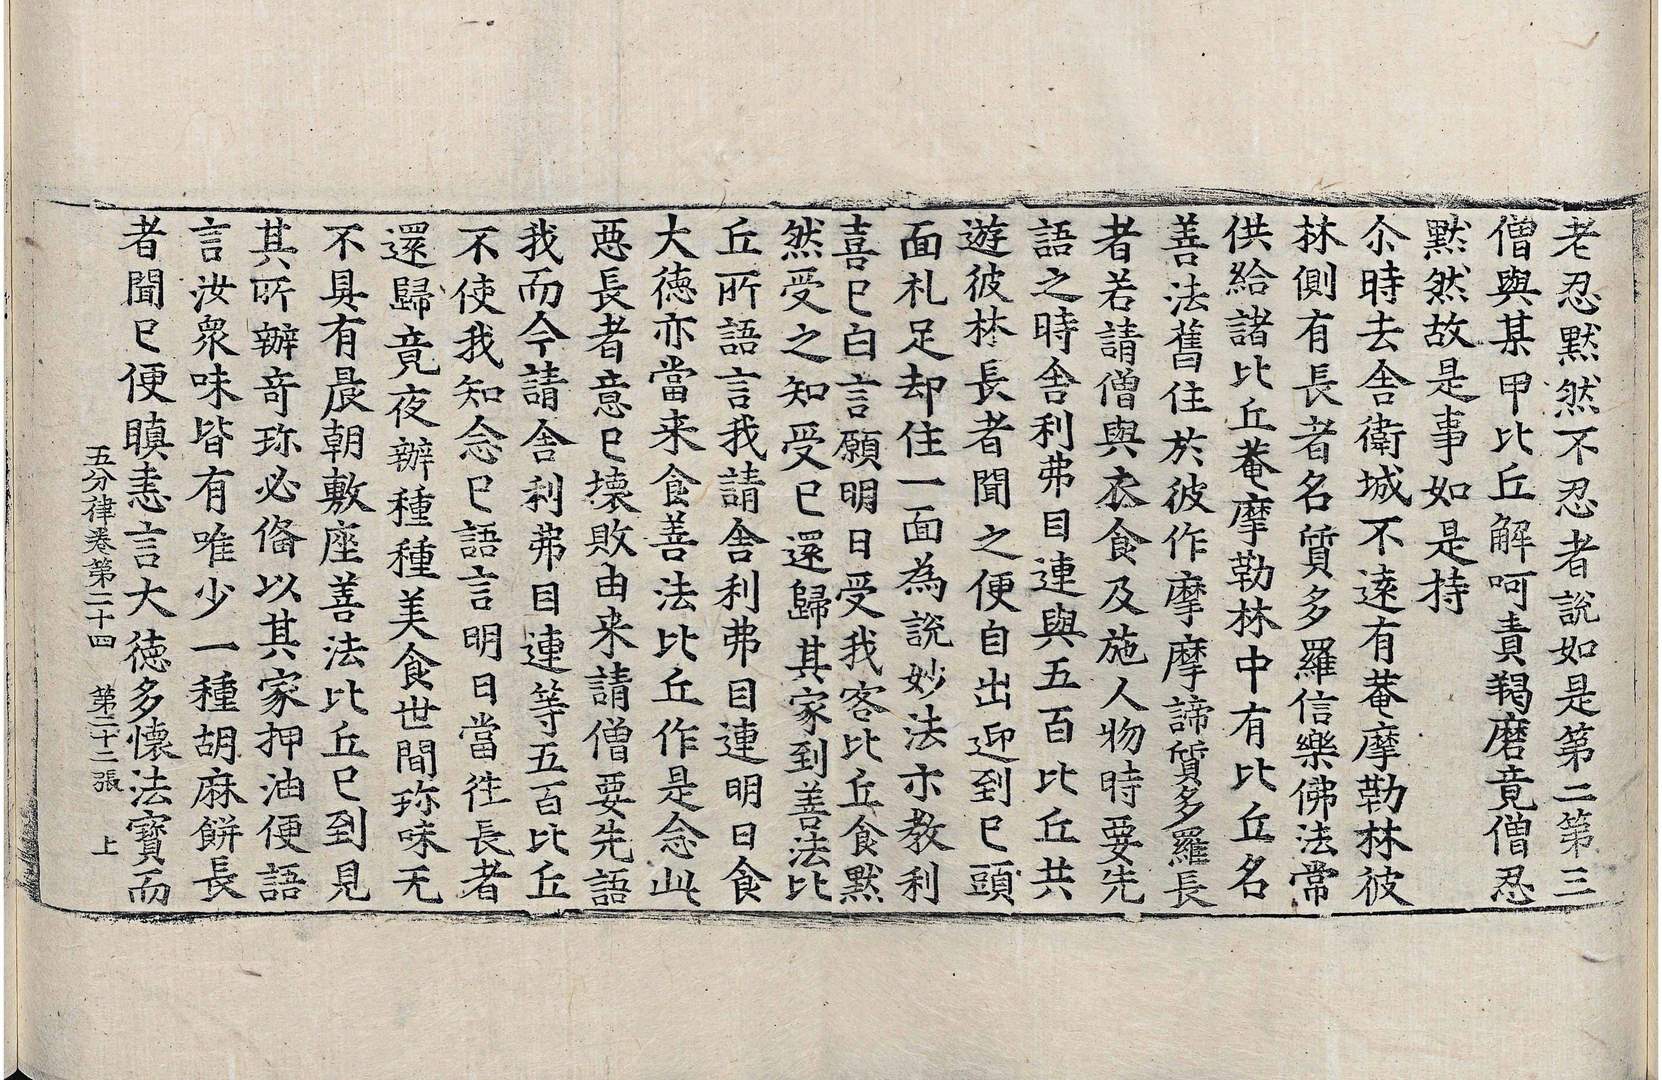 老忍黙然不忍者說如是第二第三
僧與某甲比丘解呵責羯磨竟僧忍
黙然故是事如是持
尒時去舍衛城不遠有菴摩勒林彼
林側有長者名質多羅信樂佛法常
供給諸比丘菴摩勒林中有比丘名
善法舊住於彼作摩摩諦質多羅長
者若請僧與衣食及施人物時要先
語之時舍利弗目連與五百比丘共
遊彼林長者聞之便自出迎到已頭
面礼足却住一面為說妙法示教利
喜已白言願明日受我客比丘食黙
然受之知受已還歸其家到善法比
丘所語言我請舍利弗目連明日食
大徳亦當来食善法比丘作是念此
悪長者意已壊敗由来請僧要先語
我而今請舍利弗目連等五百比丘
不使我知念已語言明日當往長者
還歸竟夜辦種種美食世間珎味无
不具有晨朝敷座善法比丘已到見
其所辦奇珎必俻以其家押油便語
言汝衆味皆有唯少一種胡麻餅長
者聞已便瞋恚言大徳多懐法寶而
五分律卷第二十四 第二十二張 上